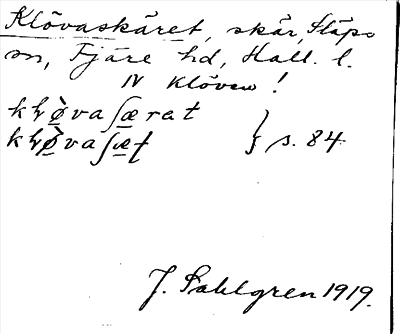 Klövaskäret, skär, Släps
sn, Fjäre hd, Hall. l.
N Klöven!
kḷø̀vaʃærat
kḷø̀vaʃæt } s. 84
J. Sahlgren 1919.